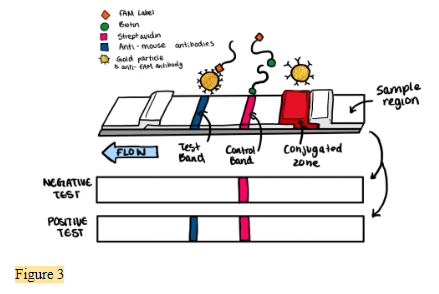 FAM Label
Biotin
Streptavidin
Anti-mouse antibodies
Gold particle
& anti-FAM antibody
Sample
region
FLOW
Test
Band
Control
Band
Conjugated
zone
NEGATIVE
TEST
POSITIVE
TEST
Figure 3